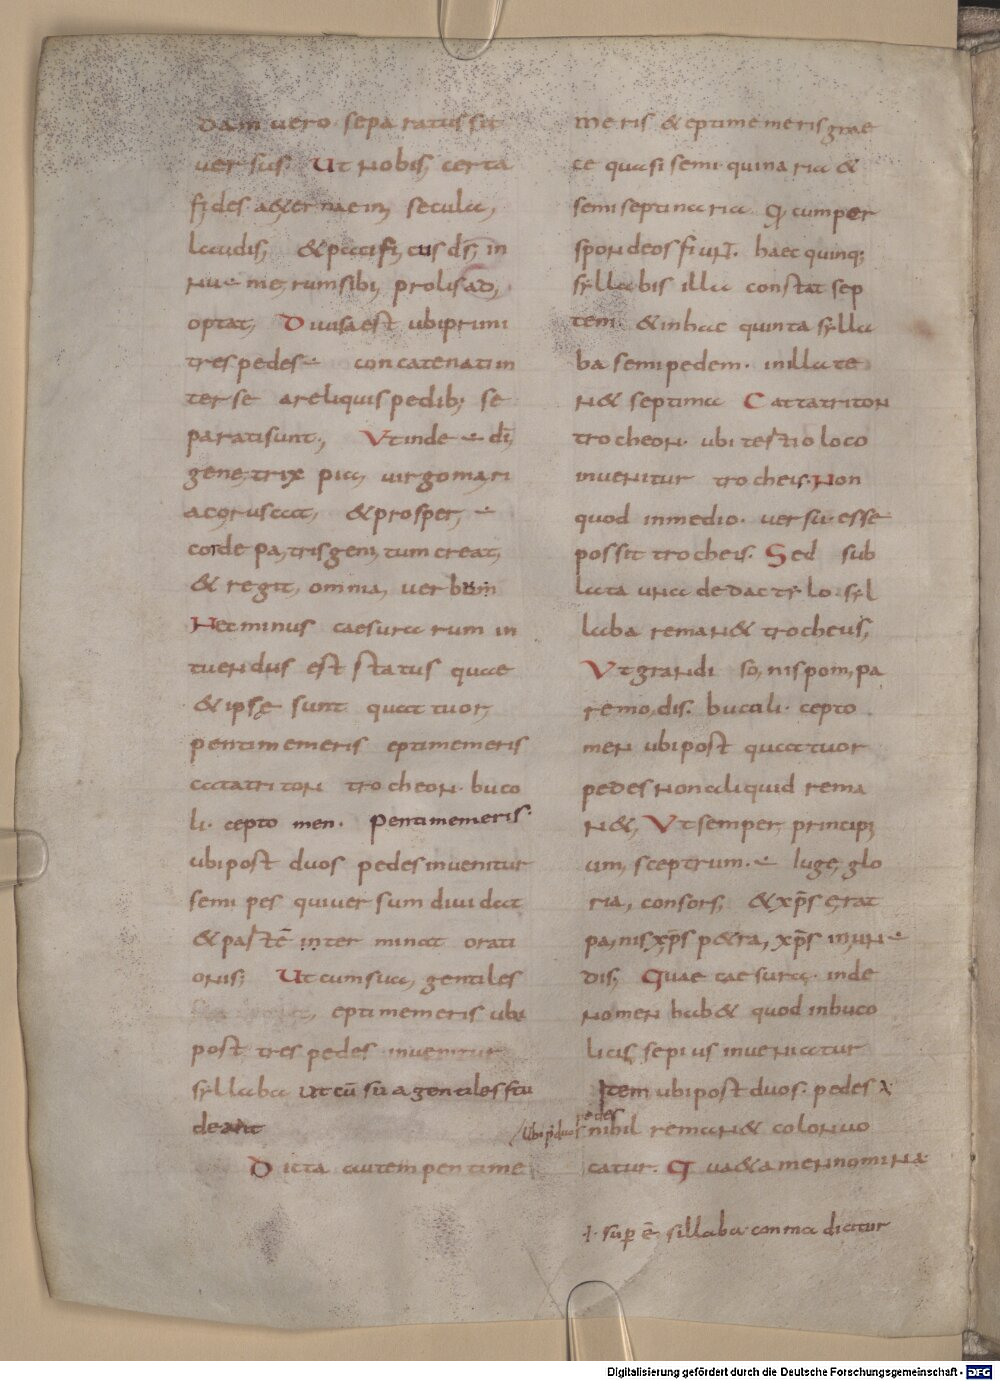 dam vero separatus sit
versus. Ut nobis, certa
fides & aeternae in, secula,
laudis, & pacificus ds, in
nue me, rum sibi, prolis ad,
optat, Divisa est ubi primi
tres pedes concatenati in
ter se a reliquis pedib; se
parati sunt, Ut inde di,
gene, trix pia, virgo ma, ri
a co, ruscat, & prosper,
corde pa, tris geni, tum creat,
& regit, omnia, verbum
Nec minus caesurarum in
tuendus est status quae
& ipsę sunt quattuor,
pentimemeris eptimemeris
catatriton trocheon. buco
li. cepto men. Pentimemeris.
ubi post duos pedes invenitur
semi pes qui versum dividat
& partē inter minat orati
onis; Ut cum sua, gentiles
eptimemeris ubi
post tres pedes invenitur
syllaba ut cū sua gentiles stu
deant
Dicta autem pentime
meris & eptimemeris grae
ce quasi semi quinaria &
semiseptinaria Q, cum per
spondeos fiunt. haec quinq;
syllabis illa constat sep
tem. & in hac quinta sylla
ba semipedem. in illa te
n& septima Cattatriton
trocheon. ubi tertio loco
invenitur trocheus. Non
quod in medio. versu. esse
possit trocheus. Sed sub
lata una de dactylo. syl
laba reman& trocheus,
Ut grandi so, nis pom, pa
remo, dis. bucoli. cepto
men ubi post quattuor
pedes non aliquid rema
n&, Ut semper, princip,
um, sceptrum. luge, glo
ria, consors, & xp̄s erat
pa, nis xp̄s p&ra, xp̄s in, un
dis, Quae caesura. inde
nomen hab& quod in buco
licis, sepius inveniatur
Item ubi post duos. pedes
Ubi p duos pedes
nihil reman& colon vo
catur. Qua & amen nomina
ł. sup ē sillaba conma dicitur
Digitalisierung gefördert durch die Deutsche Forschungsgemeinschaft - DFG